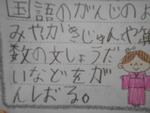 国語のがんじのよ
みやかきじゅんや算
数の文しょうだ
いなどをが
んばる。